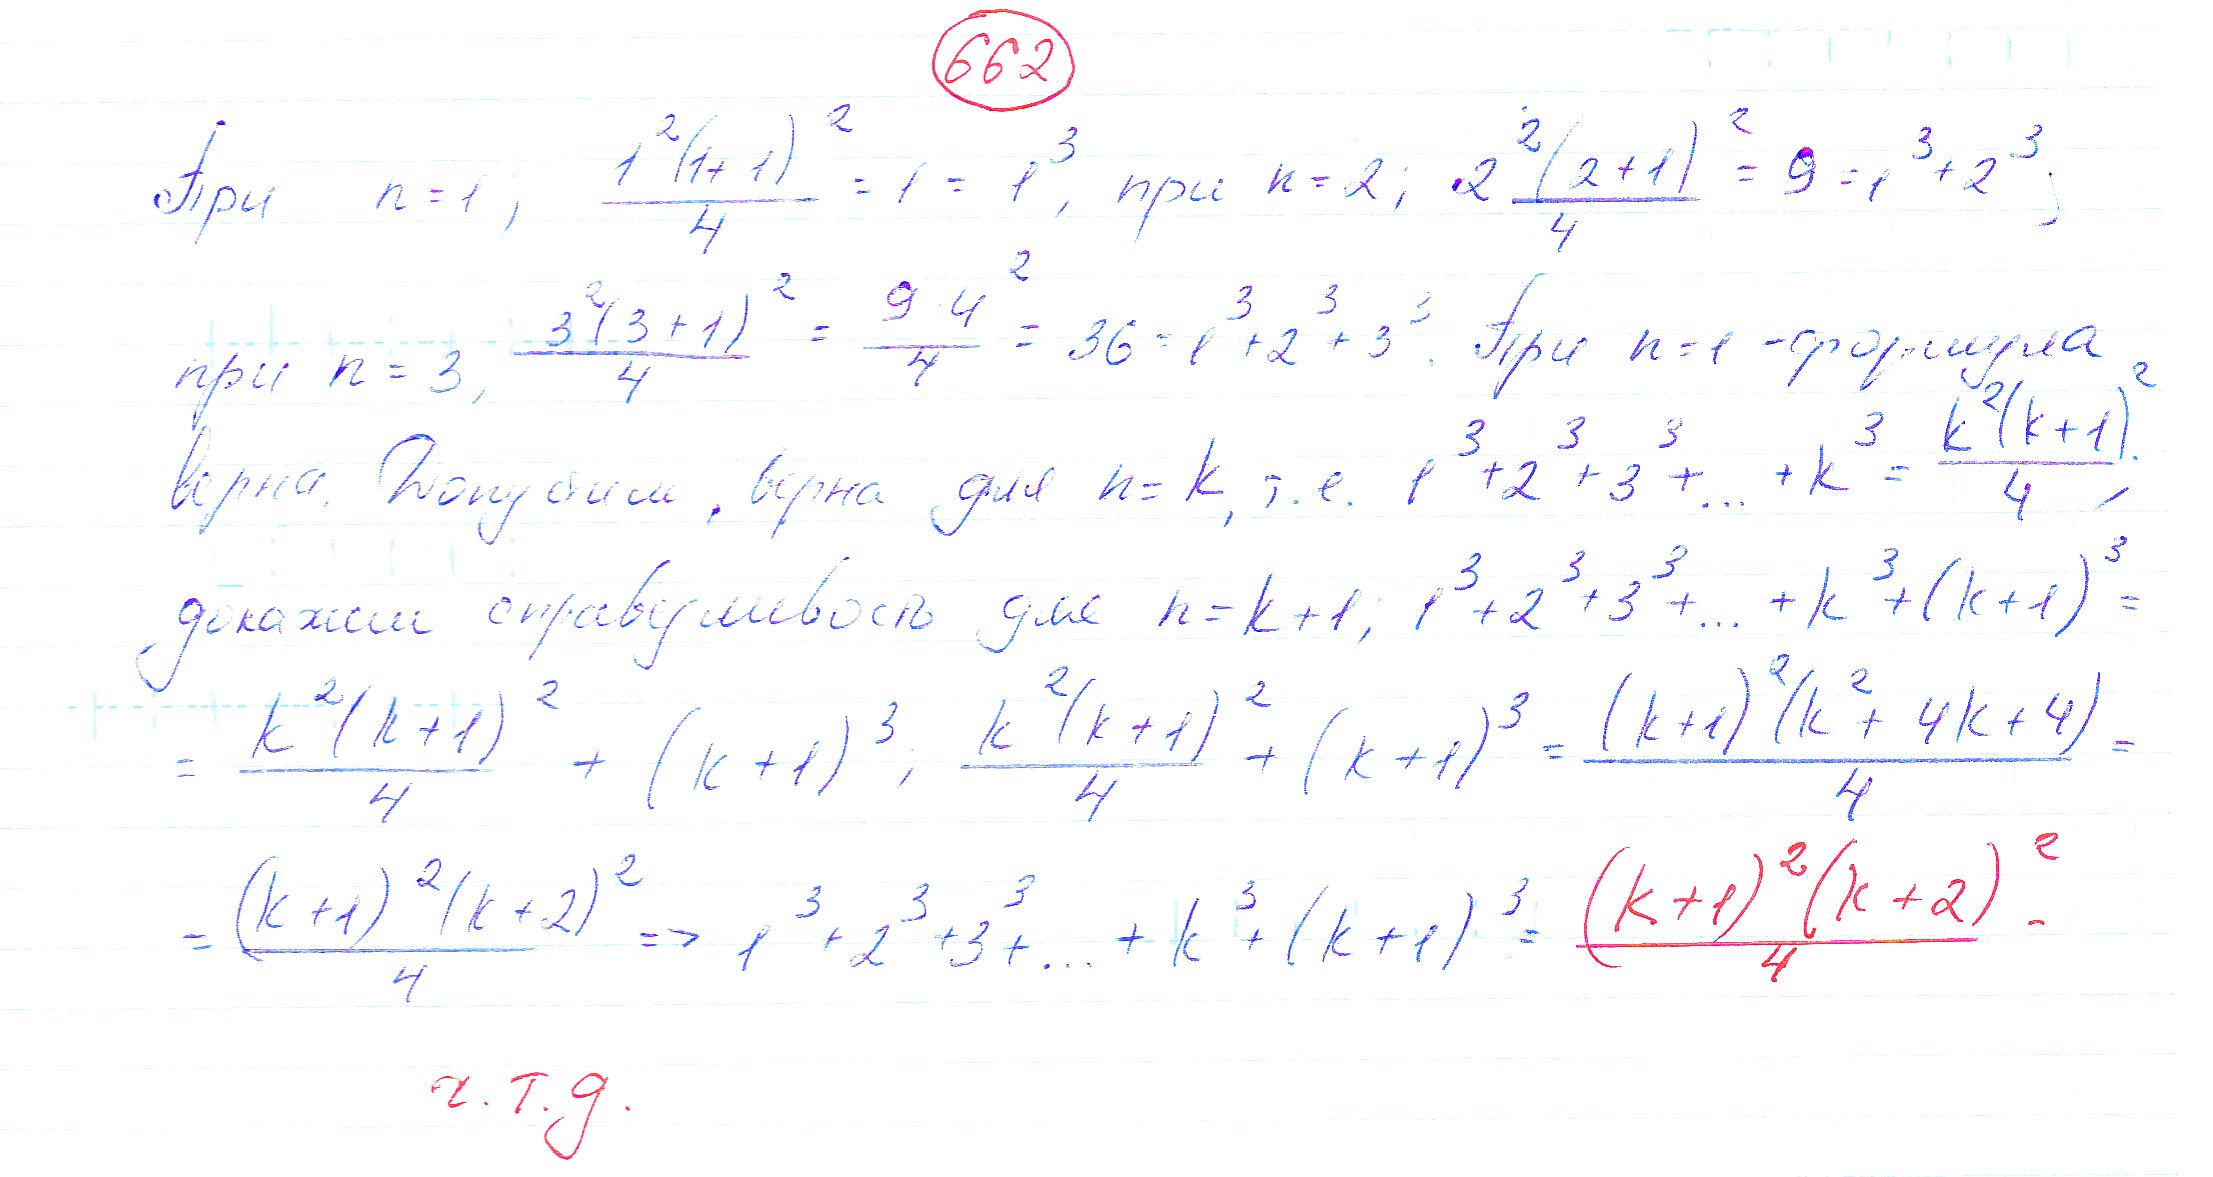 662
При n=1; 1²(1+1)²/4 = 1 = 1³, при n=2; 2²(2+1)²/4 = 9 = 1³+2³;
при n=3, 3²(3+1)²/4 = 9·4²/4 = 36 = 1³+2³+3³. При n=1 - формула
верна. Допустим, верна для n=k, т.е. 1³+2³+3³+...+k³ = k²(k+1)²/4,
докажем справедливость для n=k+1; 1³+2³+3³+...+k³+(k+1)³=
= k²(k+1)²/4 + (k+1)³; k²(k+1)²/4 + (k+1)³ = (k+1)²(k²+4k+4)/4 =
= (k+1)²(k+2)²/4 => 1³+2³+3³+...+k³+(k+1)³ = (k+1)²(k+2)²/4 -
ч.т.д.